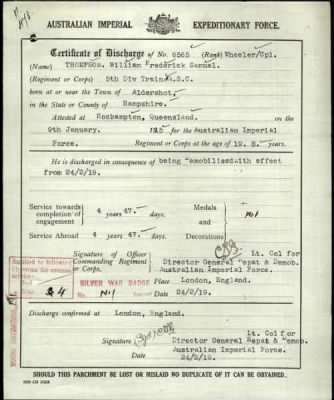 AUSTRALIAN IMPERIAL EXPEDITIONARY FORCE.
Certificate of Discharge of No. 6565 (Rank) Wheeler/Cpl.
(Name) THOMPSON. William Frederick Samuel.
(Regiment or Corps) 5th Div Train A.S.C.
born at or near the Town of Aldershot,
in the State or County of Hampshire.
Attested at Rockampton, Queensland. on the
9th January. 1915 for the Australian Imperial
Force. Regiment or Corps at the age of 19. 8. Years.
He is discharged in consequence of being Demobilised with effect
from 24/2/19.
Service towards completion of engagement 4 years 47. days.
Medals and Decorations Nil
Service Abroad 4 years 47. days.
Signature of Officer Commanding Regiment or Corps.
Lt. Col for
Director General Repat & Demob.
Australian Imperial Force.
Place London, England.
Date 24/2/19.
SILVER WAR BADGE
No. Nil
Discharge confirmed at London, England.
Signature
Lt. Col for
Director General Repat & Demob.
Australian Imperial Force.
Date 24/2/19.
SHOULD THIS PARCHMENT BE LOST OR MISLAID NO DUPLICATE OF IT CAN BE OBTAINED.